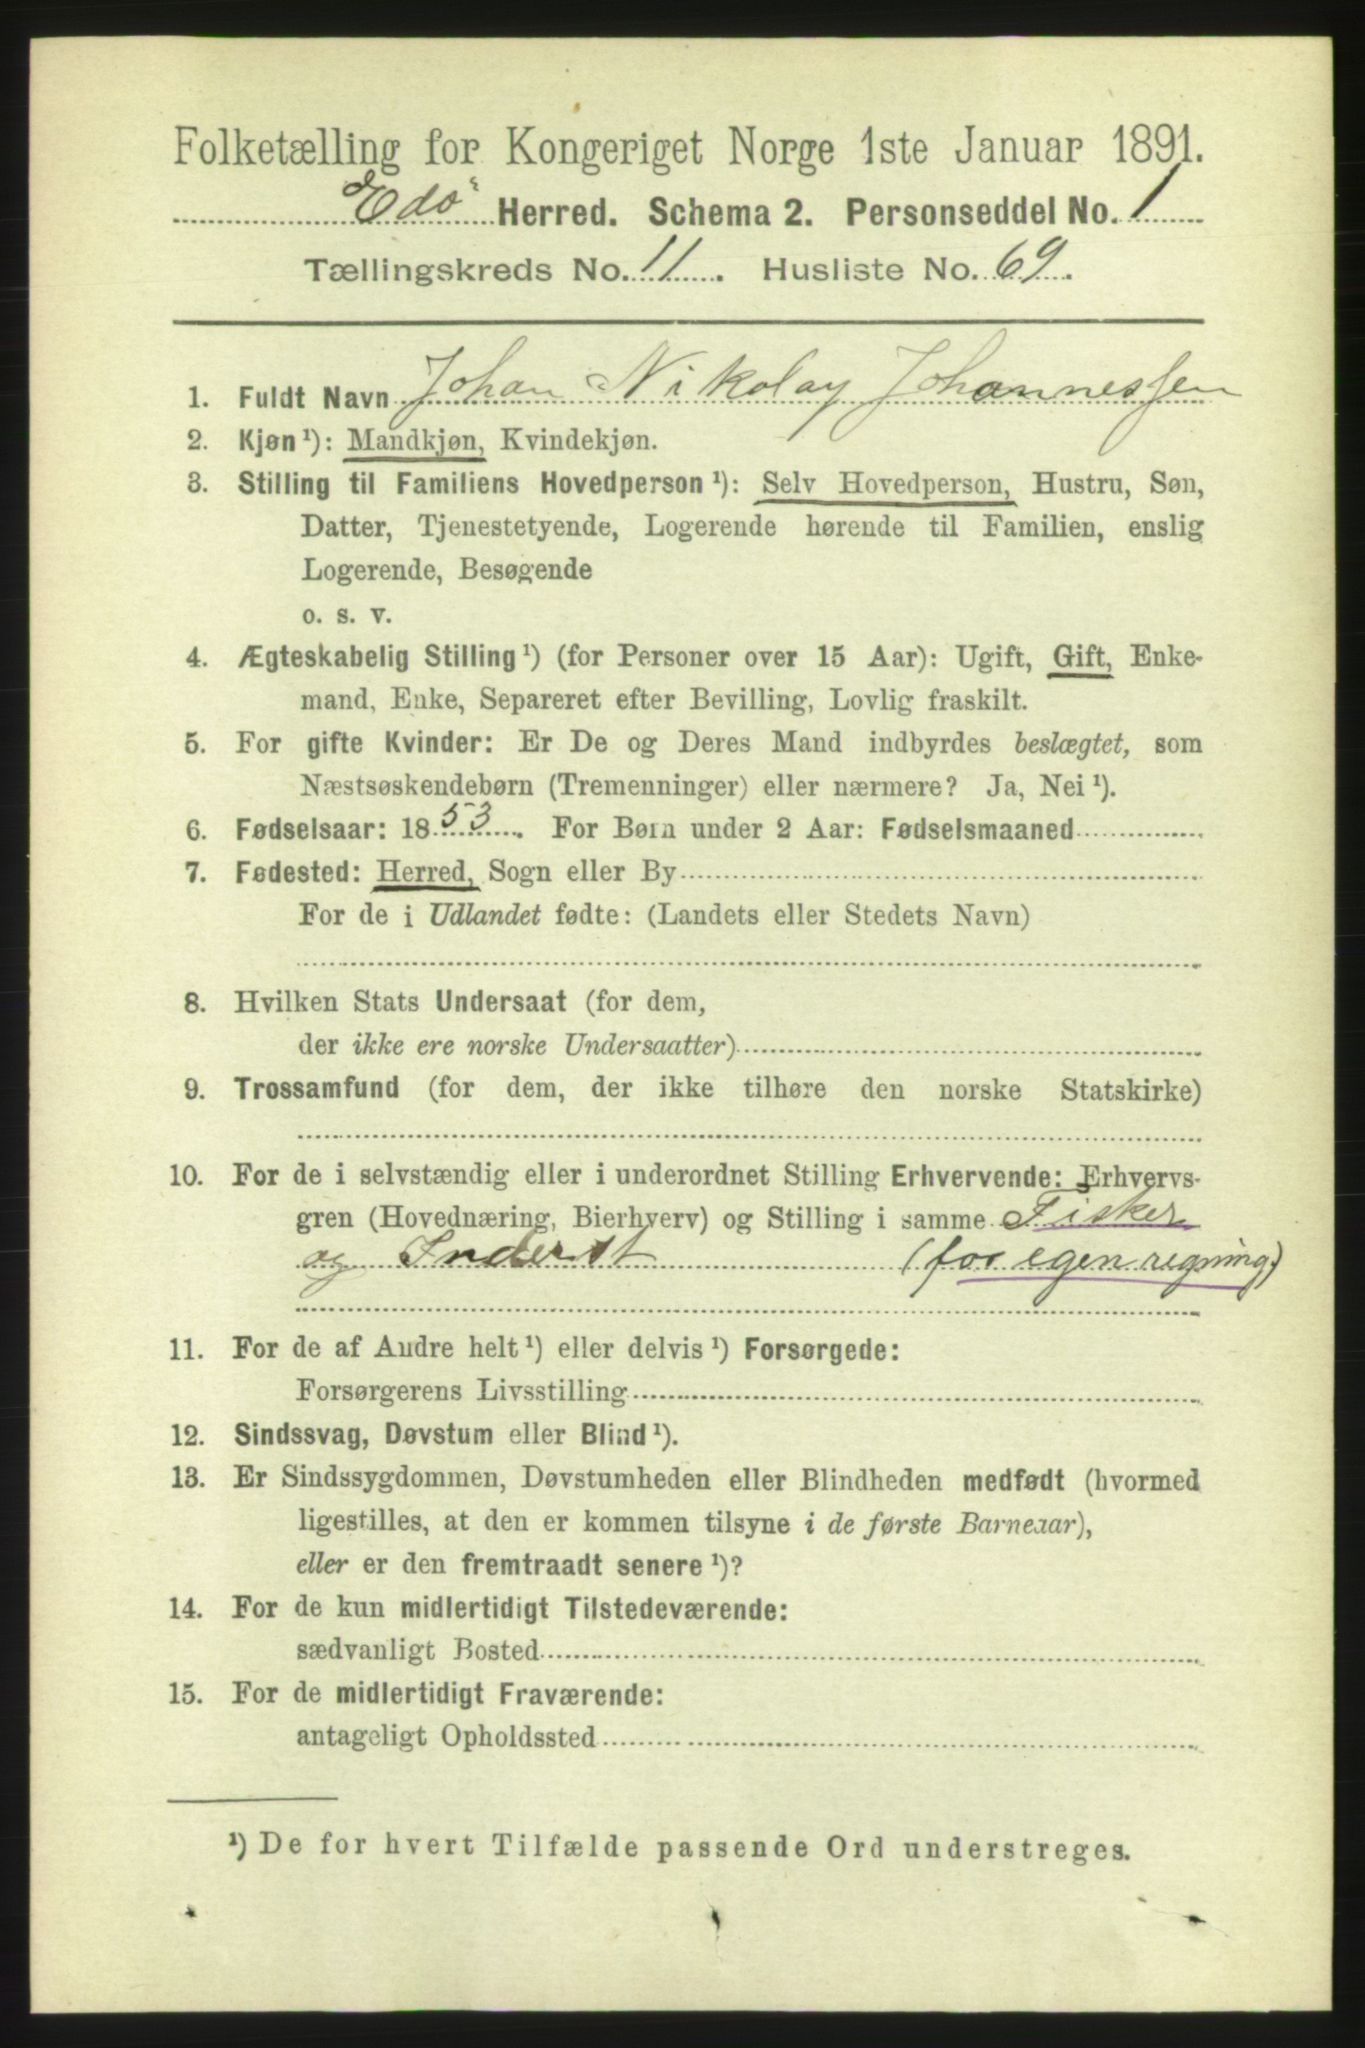 Folketælling for Kongeriget Norge 1ste Januar 1891.
Edö Herred. Schema 2. Personseddel No. 1
Tællingskreds No. 11. Husliste No. 69.
1. Fuldt Navn Johan Nikolay Johannessen
2. Kjøn¹): Mandkjøn, Kvindekjøn.
3. Stilling til Familiens Hovedperson¹): Selv Hovedperson, Hustru, Søn,
Datter, Tjenestetyende, Logerende hørende til Familien, enslig
Logerende, Besøgende
o. s. v.
4. Ægteskabelig Stilling¹) (for Personer over 15 Aar): Ugift, Gift, Enke-
mand, Enke, Separeret efter Bevilling, Lovlig fraskilt.
5. For gifte Kvinder: Er De og Deres Mand indbyrdes beslægtet, som
Næstsøskendebørn (Tremenninger) eller nærmere? Ja, Nei¹).
6. Fødselsaar: 1853. For Børn under 2 Aar: Fødselsmaaned
7. Fødested: Herred, Sogn eller By
For de i Udlandet fødte: (Landets eller Stedets Navn)
8. Hvilken Stats Undersaat (for dem,
der ikke ere norske Undersaatter)
9. Trossamfund (for dem, der ikke tilhøre den norske Statskirke)
10. For de i selvstændig eller i underordnet Stilling Erhvervende: Erhvervs-
gren (Hovednæring, Bierhverv) og Stilling i samme Fisker
og Inderst (for egen regning)
11. For de af Andre helt¹) eller delvis¹) Forsørgede:
Forsørgerens Livsstilling
12. Sindssvag, Døvstum eller Blind¹).
13. Er Sindssygdommen, Døvstumheden eller Blindheden medfødt (hvormed
ligestilles, at den er kommen tilsyne i de første Barneaar),
eller er den fremtraadt senere¹)?
14. For de kun midlertidigt Tilstedeværende:
sædvanligt Bosted
15. For de midlertidigt Fraværende:
antageligt Opholdssted
¹) De for hvert Tilfælde passende Ord understreges.